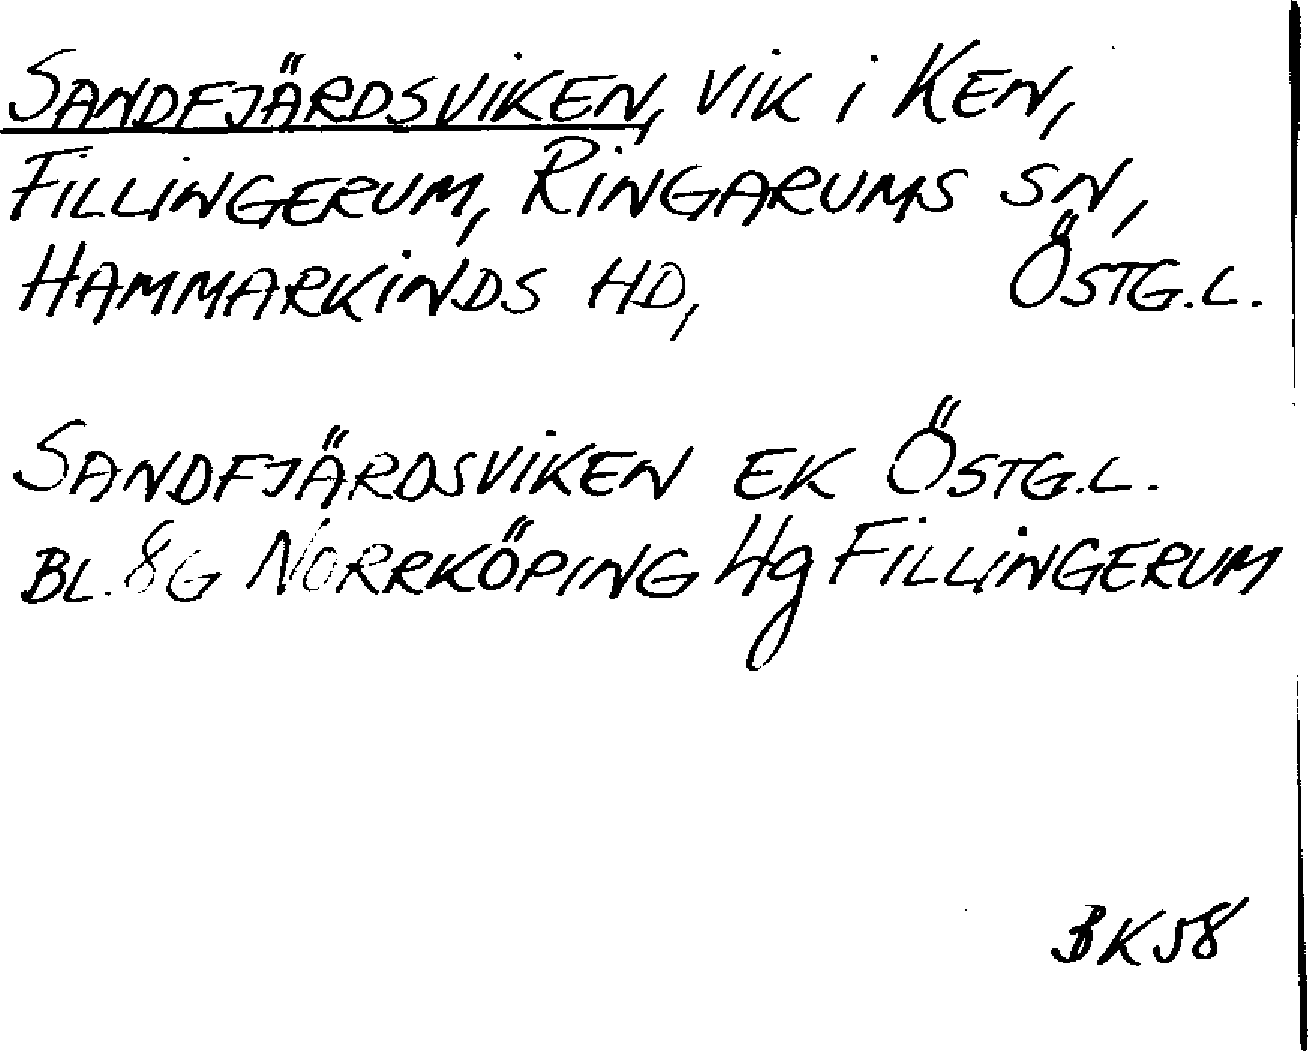 SANDFJÄRDSVIKEN, VIK i KEN,
FILLINGERUM, RINGARUMS SN,
HAMMARKINDS HD, ÖSTG.L.
SANDFJÄRDSVIKEN EK ÖSTG.L.
BL. 8G NORRKÖPING 4g FILLINGERUM
BK58